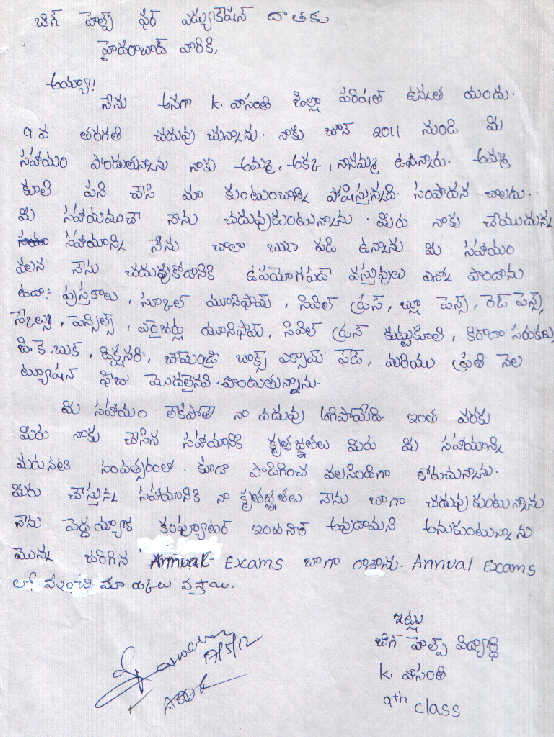 బిగ్ హెల్ప్ ఫర్ ఎడ్యుకేషన్ దాతకు
హైదరాబాద్ వారికి,
అయ్యా!
నేను అనగా K. వాసంతి జిల్లా పరిషత్ ఉన్నత యందు.
9వ తరగతి చదువు చున్నాను. నాకు జూన్ 2011 నుండి మీ
సహాయం పొందుతున్నాను నాకు అమ్మ, అక్క, నానమ్మ ఉన్నారు. అమ్మ
కూలి పని చేసి మా కుంటుంబాన్ని పోషిస్తున్నది సంపాదన చాలదు.
మీ సహాయముచే నేను చదువుకుంటున్నాను. మీరు నాకు చేయుచున్న
సహాయాన్ని నేను చాలా ఋణ పడి ఉన్నాను మీ సహాయం
వలన నేను చదువుకోడానికి ఉపయోగపడే వస్తువులు అన్ని పొందాను
ఉదా: పుస్తకాలు, స్కూల్ యూనిఫామ్, సివిల్ డ్రస్, బ్లూ పెన్స్, రెడ్ పెన్స్,
స్కేల్సు, పెన్సిల్స్, ఎరైజర్లు యూనిఫామ్, సివిల్ డ్రస్ కుట్టుకూలి, కిరాణా సరుకులు
జి.కె.బుక్, డిక్షనరీ, జామెంట్రి బాక్స్ ఎగ్జామ్ పేడ్, మరియు ప్రతి నెల
ట్యూషన్ ఫీజు మొదలైనవి పొందుతున్నాను.
మీ సహాయం లేకపోతే నా చదువు ఆగిపోయేది ఇంత వరకు
మీరు నాకు చేసిన సహాయానికి కృతజ్ఞతలు మీరు మీ సహాయాన్ని
మరుసటి సంవత్సరంలో కూడా పొడిగించ వలసిందిగా కోరుచున్నాను.
మీరు చేస్తున్న సహాయానికి నా కృతజ్ఞతలు నేను బాగా చదువుకుంటున్నాను
నేను పెద్దయ్యాక కంప్యూటర్ ఇంజనీర్ అవుదామని అనుకుంటున్నాను
మొన్న జరిగిన Annual Exams బాగా రాశాను. Annual Exams
లో మంచి మార్కులు వస్తాయి.
ఇట్లు
బిగ్ హెల్ప్ విద్యార్థి
K. వాసంతి
9th class